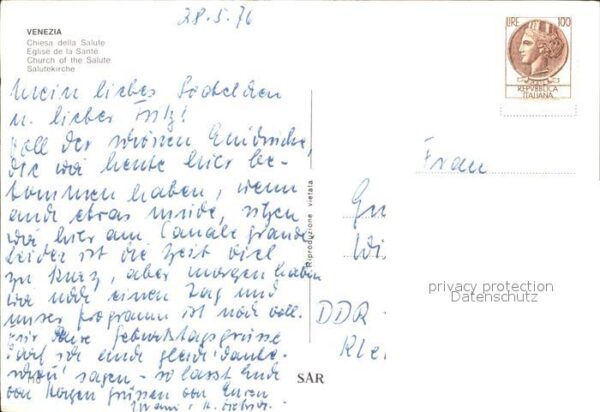 28.5.76
VENEZIA
Chiesa della Salute
Eglise de la Santé
Church of the Salute
Salutekirche
LIRE 100
REPVBBLICA
ITALIANA
Mein liebes
u. lieber Fritz!
Voll der schönen Eindrücke,
die wir heute hier be-
kommen haben, wenn
auch etwas müde, sitzen
wir hier am Canale grande
Leider ist die Zeit viel
zu kurz, aber morgen haben
wir noch einen Tag und
unser Programm ist noch voll.
Für Eure Geburtstagsgrüsse
darf ich auch gleich danke-
schön sagen - so lasst Euch
von Herzen grüssen von Euren
Riproduzione vietata
SAR
Frau
DDR
privacy protection
Datenschutz